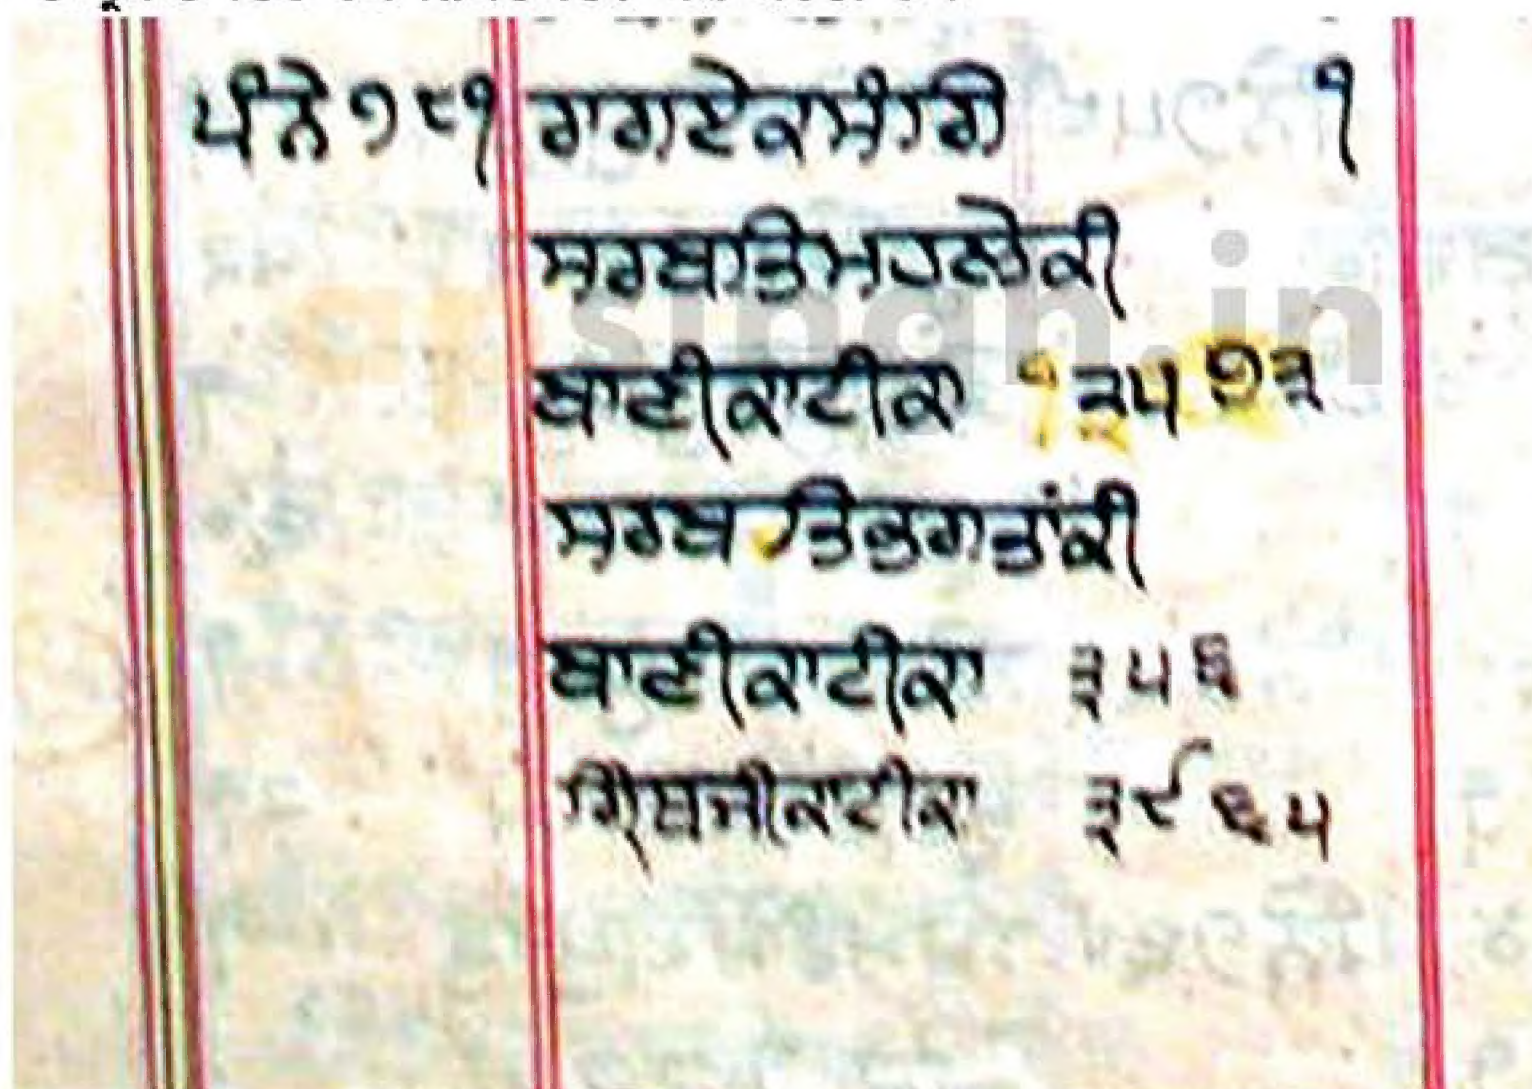 ਪੰਨੇ ੭੮੧ ਰਾਗਏਕਮੰਗਿ ੧
ਸਰਬਤਿਮਹਲੇਕੀ
ਬਾਣੀਕਾਟੀਕਾ ੧੩੫੭੩
ਸਰਬ ਤਿਭਗਤਾਂਕੀ
ਬਾਣੀਕਾਟੀਕਾ ੩੫੬
ਗ੍ਰਿੰਥਜੀਕਾਟੀਕਾ ੩੯੬੫
arsingh.in